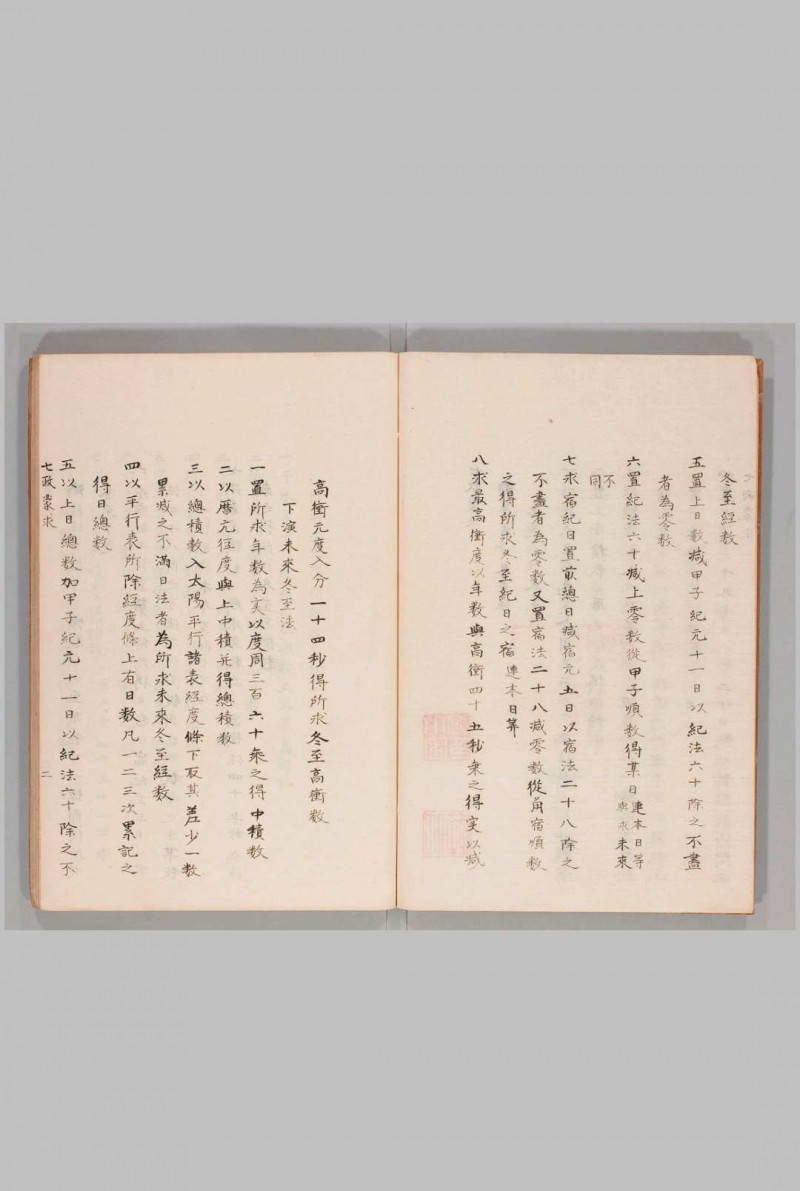 冬至經数
五置上日数减甲子紀元十一日以紀法六十除之不盡
者為零数
六置紀法六十减上零数從甲子順数得某日連本日等與求未來
不同
七求宿紀日置前總日减宿元五日以宿法二十八除之
不盡者為零数又置宿法二十八减零数從角宿順数
之得所求冬至紀日之宿連本日筭
八求最高衝度以年数與高衝四十五秒乘之得实以减
高衝元度入分一十四秒得所求冬至高衝数
下演未來冬至法
一置所求年数為实以度周三百六十乘之得中積数
二以曆元往度與上中積并得總積数
三以總積数入太陽平行諸表經度條下取其差少一数
累减之不滿日法者為所求未來冬至經数
四以平行表所除經度條上有日数凡一二三次累記之
得日總数
五以上日總数加甲子紀元十一日以紀法六十除之不
七政蒙求
二